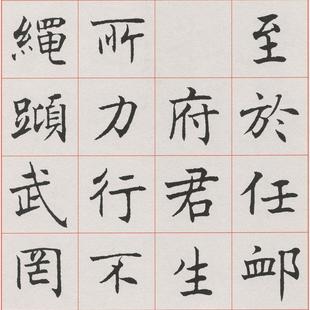 至於任卹
府君生
所力行不
繩蹞武罔